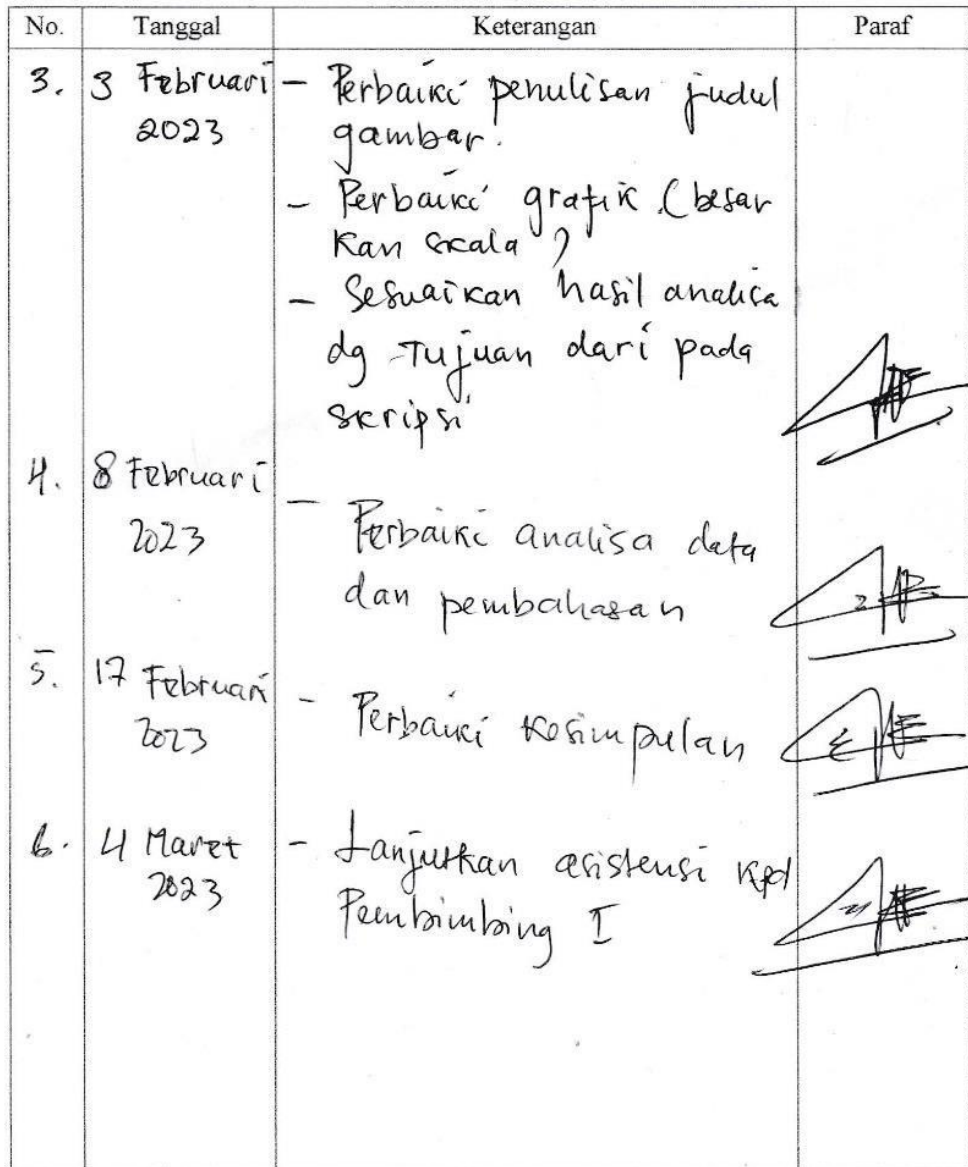 No. Tanggal Keterangan Paraf
3. 3 Februari - Perbaiki penulisan judul
2023 gambar.
- Perbaiki grafik (besar
kan skala)
- Sesuaikan hasil analisa
dg Tujuan dari pada
skripsi
4. 8 Februari
2023 - Perbaiki analisa data
dan pembahasan
5. 17 Februari - Perbaiki kesimpulan
2023
6. 4 Maret - Lanjutkan asistensi kpd
2023 Pembimbing I